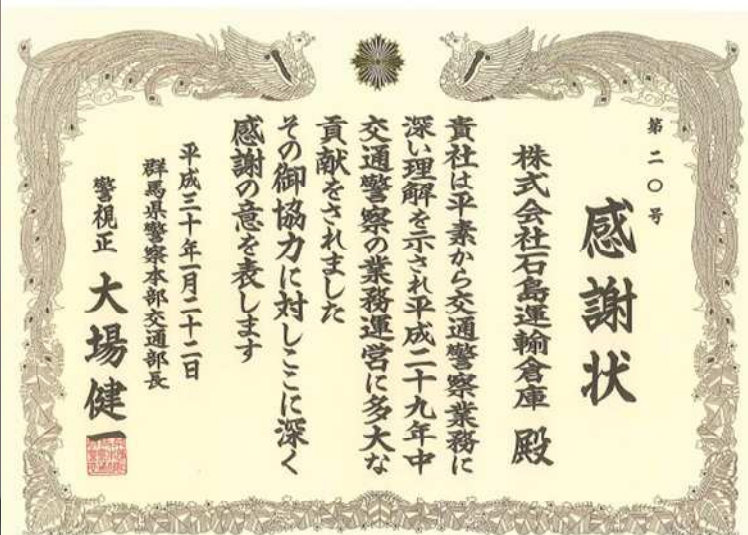 第二〇号
感謝状
株式会社石島運輸倉庫 殿
貴社は平素から交通警察業務に
深い理解を示され平成二十九年中
交通警察の業務運営に多大な
貢献をされました
その御協力に対しここに深く
感謝の意を表します
平成三十年一月二十二日
群馬県警察本部交通部長
警視正 大場健一